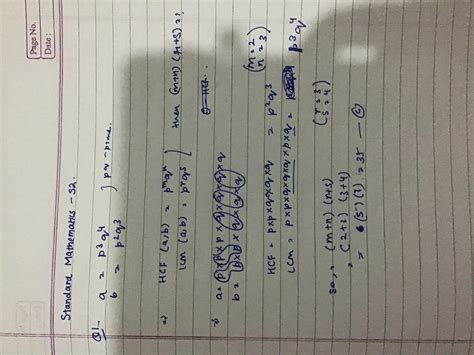 Page No.
Date:
Standard Mathematics - S2.
Q1- a = p³q⁴
b = p²q³ } pq - prime.
=) HCF (a,b) = pᵐqⁿ
LCM (a,b) = pʳqˢ } then (m+n) (r+s) = ?
=) a = p×p×p×q×q×q×q
b = p×p×q×q×q
HCF = p×p×q×q×q = p²q³ (m=2 n=3)
LCM = p×p×q×q×q×p×q = p3q⁴
(r=3 s=4)
So, = (m+n) (r+s)
= (2+3) (3+4)
= (5) (7) = 35 - (c)